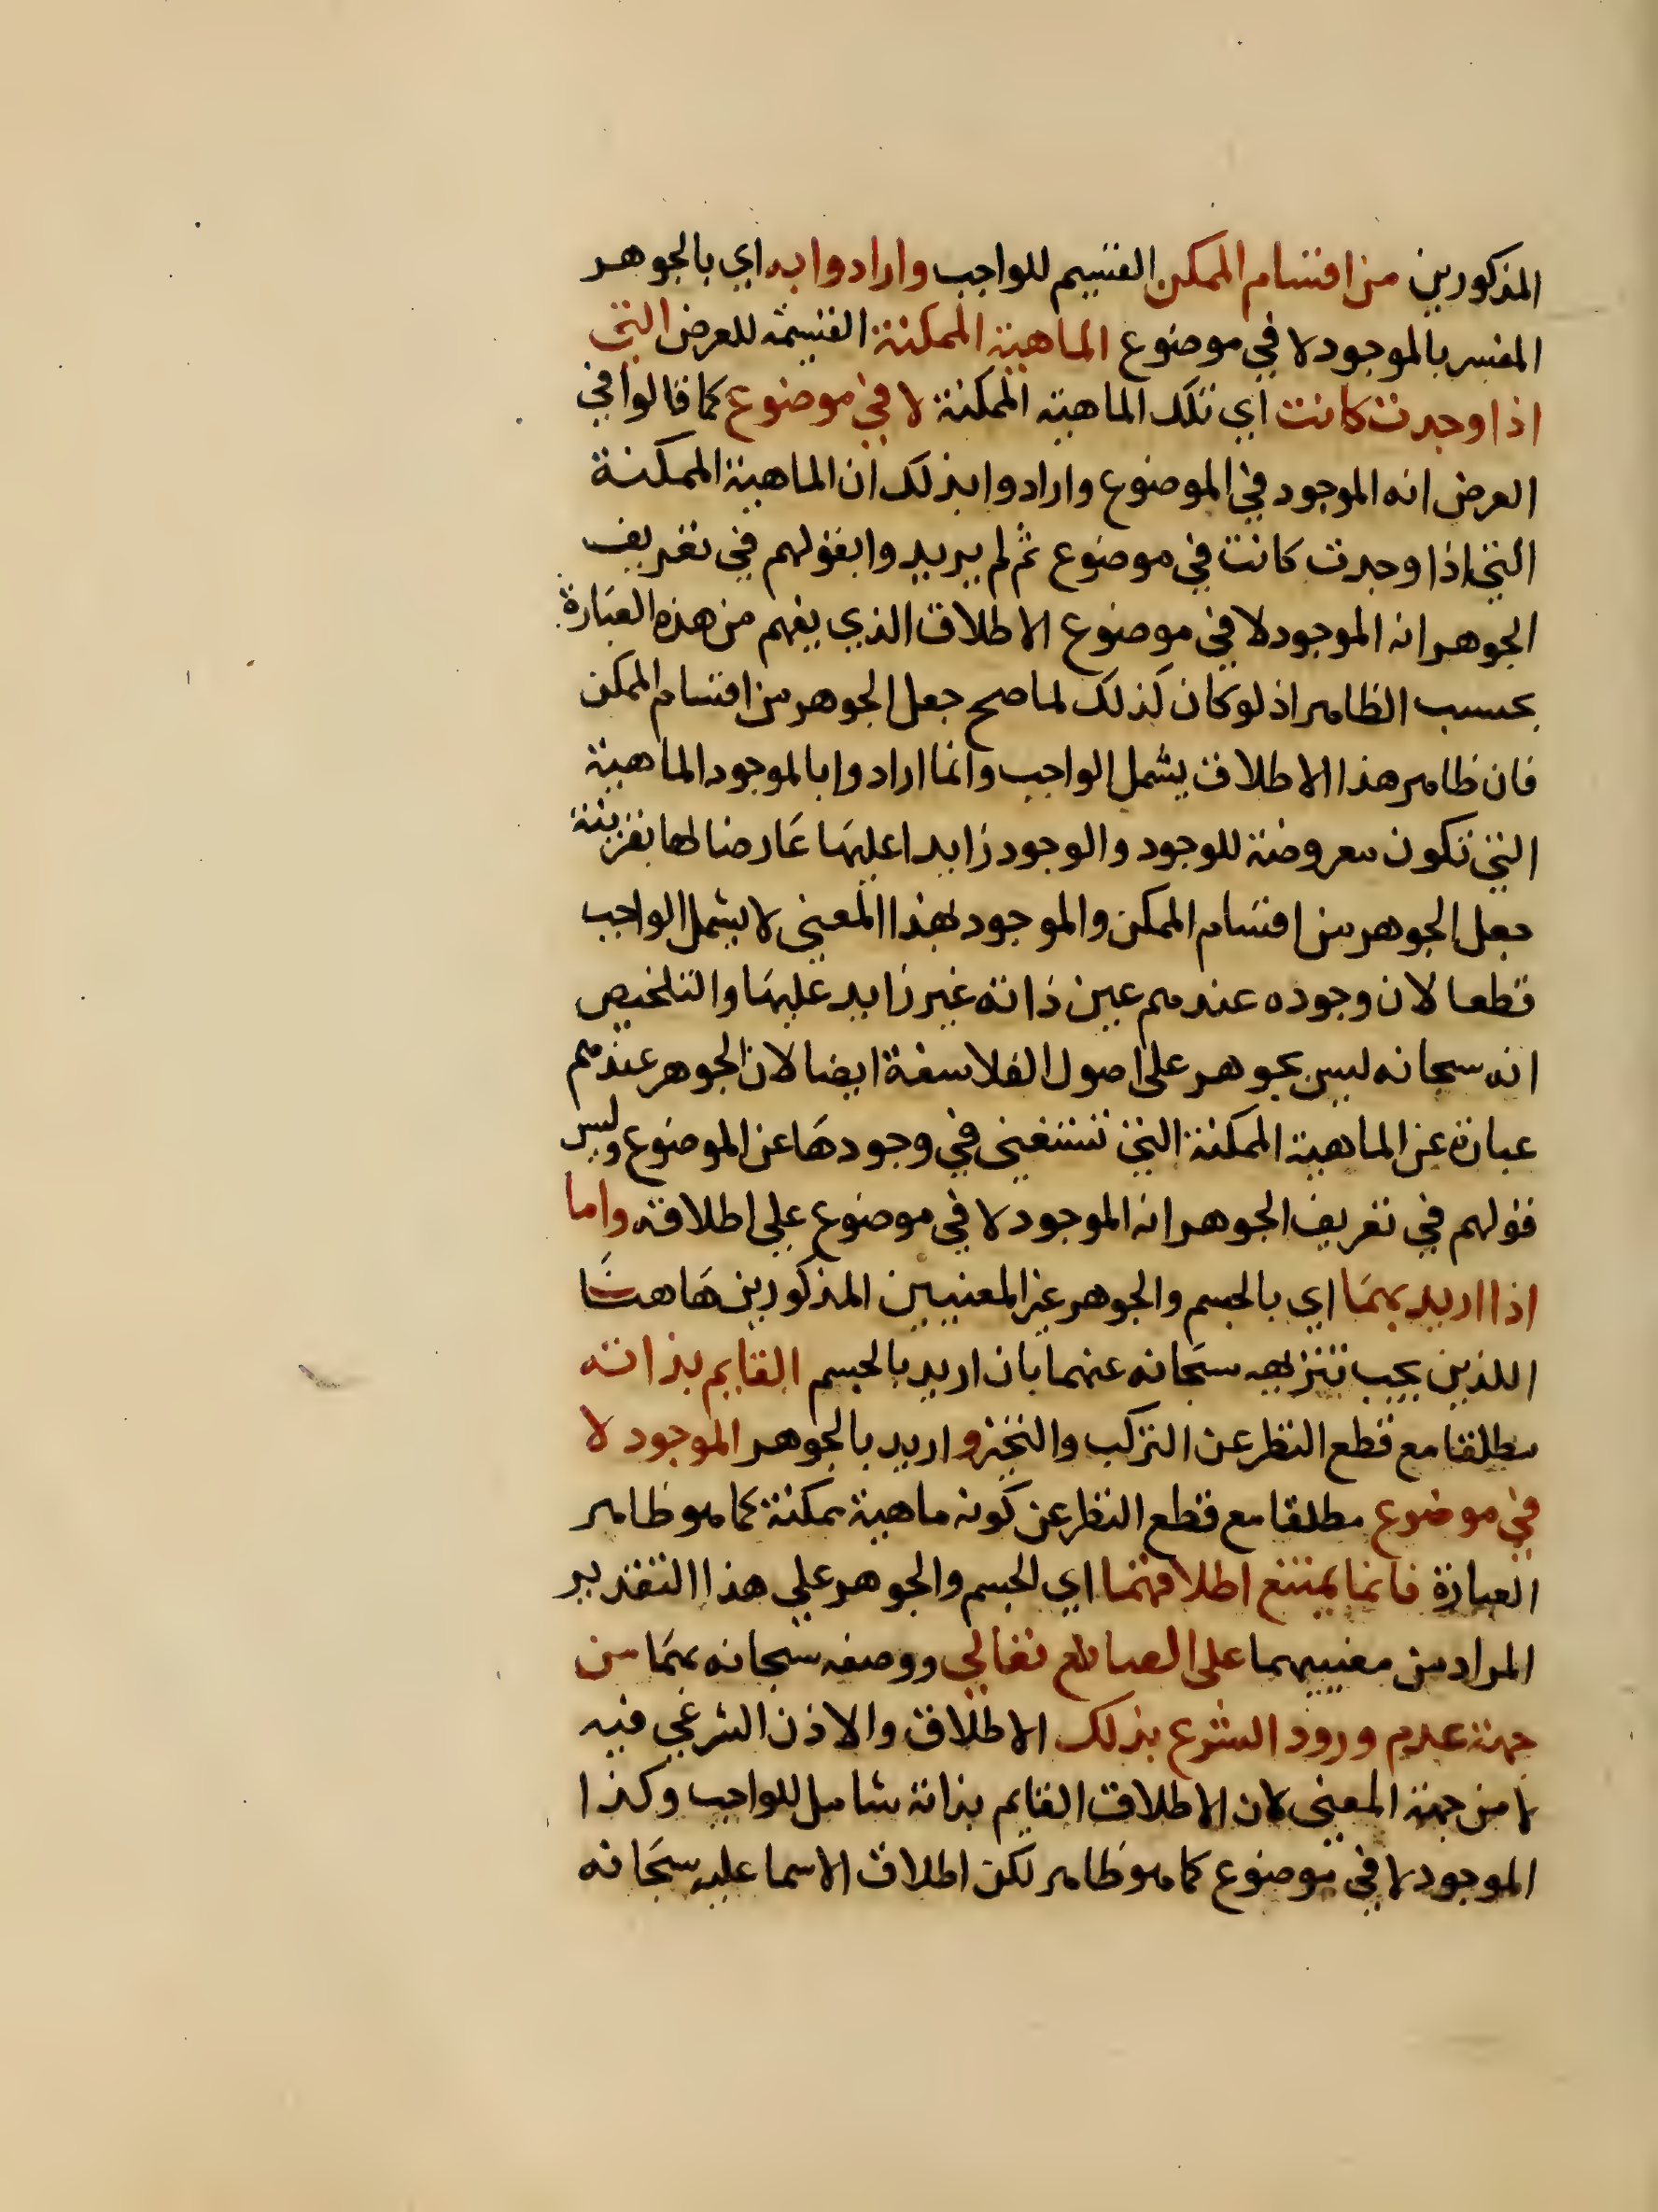 المذكورين من اقسام الممكن القسيم للواجب وارادوا به اي بالجوهر
المفسر بالموجود لا في موضوع الماهية الممكنة القسيمة للعرض التي
اذا وجدت كانت اي تلك الماهية الممكنة لا في موضوع كما قالوا في
العرض انه الموجود في الموضوع وارادوا بذلك ان الماهية الممكنة
التي اذا وجدت كانت في موضوع ثم لم يريدوا بقولهم في تعريف
الجوهر انه الموجود لا في موضوع الاطلاق الذي يفهم من هذه العبارة
بحسب الظاهر اذ لو كان كذلك لما صح جعل الجوهر من اقسام الممكن
فان ظاهر هذا الاطلاق يشمل الواجب وانما ارادوا بالموجود الماهية
التي تكون معروضة للوجود والوجود زايدا عليها عارضا لها بقرينة
جعل الجوهر من اقسام الممكن والموجود بهذا المعنى لا يشمل الواجب
قطعا لان وجوده عندهم عين ذاته غير زايد عليها والتلخيص
انه سبحانه ليس بجوهر على اصول الفلاسفة ايضا لان الجوهر عندهم
عبارة عن الماهية الممكنة التي تستغني في وجودها عن الموضوع وليس
قولهم في تعريف الجوهر انه الموجود لا في موضوع على اطلاقه واما
اذا اريد بهما اي بالجسم والجوهر غير المعنيين المذكورين هاهنا
اللذين يجب تنزيهه سبحانه عنهما بان اريد بالجسم القايم بذاته
مطلقا مع قطع النظر عن التركب والتحيز واريد بالجوهر الموجود لا
في موضوع مطلقا مع قطع النظر عن كونه ماهية ممكنة كما هو ظاهر
العبارة فانما يمتنع اطلاقهما اي الجسم والجوهر على هذا التقدير
المراد من معنييهما على الصانع تعالى ووصفه سبحانه بهما من
جهة عدم ورود الشرع بذلك الاطلاق والاذن الشرعي فيه
لا من جهة المعنى لان الاطلاق القايم بذاته شامل للواجب وكذا
الموجود لا في موضوع كما هو ظاهر لكن اطلاق الاسما عليه سبحانه